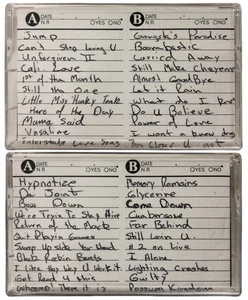 A DATE
N.R. YES NO
Jump
Can't Stop Loving U
Unforgiven II
Cali Love
1st of the Month
Still the One
Little Miss Honky Tonk
Hero of the Day
Mama Said
Vasoline
Interstate Love Song
B DATE
N.R. YES NO
Gangsta's Paradise
Boombastic
Carried Away
Still Make Cheyenne
Almost Goodbye
Let it Rain
What do I
Do U Believe
Power of Love
I want a new drug
A DATE
N.R. YES NO
Hypnotize
Da Joint
Bow Down
We're Tryin To Stay Alive
Return of the Mack
Quit Playin Games
Swap Side Yer Head
Blah Robin Beats
I Like the Way U Work it
Get Ready 4 this
Whoomp! There it is
B DATE
N.R. YES NO
Memory Remains
Glycerine
Come Down
Cumbersome
Far Behind
Still Lovin U
#2 on Live
I Alone
Lighting Crashes
Guilty
Possum Kingdom